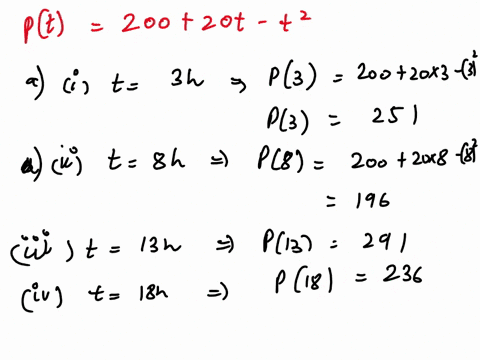 P(t) = 200 + 20t - t²
a) (i) t = 3h ⇒ P(3) = 200+20×3-(3)²
P(3) = 251
a) (ii) t = 8h ⇒ P(8) = 200+20×8-(8)²
= 196
(iii) t = 13h ⇒ P(13) = 291
(iv) t = 18h ⇒ P(18) = 236